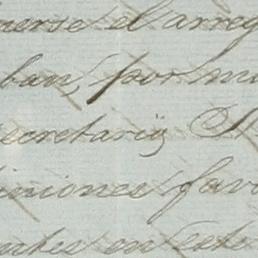 nerse el arreg
ban, por mu
ecretario S
iniones favo
ntes en este